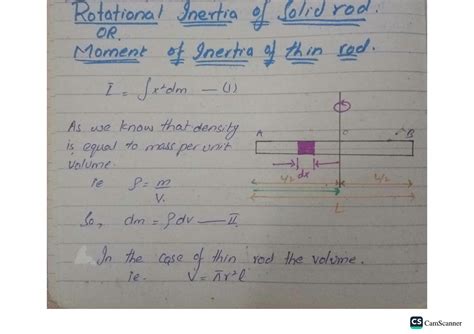 Rotational Inertia of Solid rod
OR
Moment of Inertia of thin rod.
I = ∫x²dm — (1)
As we know that density
is equal to mass per unit
volume.
ie ρ = m/V.
So, dm = ρdv — II
In the case of thin rod the volume.
ie. V = πr²l
A
O
B
dx
L/2
L/2
L
CS CamScanner